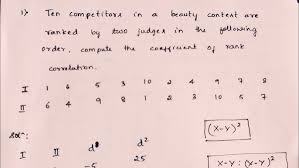 1) Ten competitors in a beauty contest are
ranked by two judges in the following
order, compute the coefficient of rank
correlation.
I 1 6 5 3 10 2 4 9 7 8
II 6 4 9 8 1 2 3 10 5 7
Solⁿ:
(X-Y)²
I II d d²
X-Y : (X-Y)²
-5 25